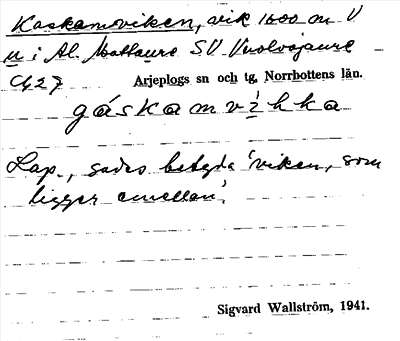 Kaskamviken, vik 1600 m V
u i Al. Mattaure S.V. Vuolvojaure
C427 Arjeplogs sn och tg, Norrbottens län.
gáskamvìhka
Lap., sades betyda 'viken, som
ligger emellan'.
Sigvard Wallström, 1941.